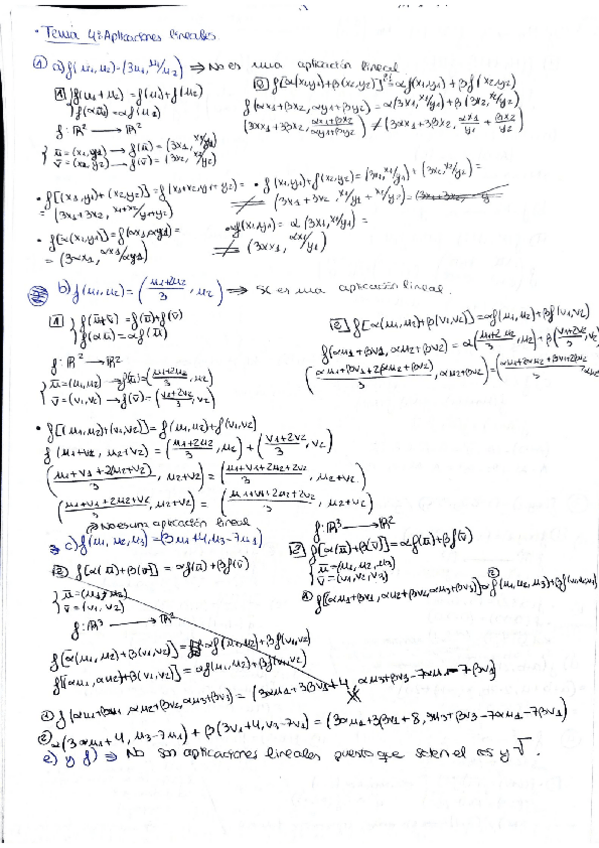 · Tema 4: Aplicaciones lineales.
① a) f(u₁,u₂)=(3u₁, u₁/u₂) ⇒ No es una aplicación lineal
① { f(u₁+u₂) = f(u₁)+f(u₂)
f(αu) = αf(u₂)
f: ℝ² → ℝ²
{ ū=(x₁,y₁) → f(ū) = (3x₁, x₁/y₁)
v̄=(x₂,y₂) → f(v̄) = (3x₂, x₂/y₂)
② f[α(x₁,y₁)+β(x₂,y₂)] = αf(x₁,y₁) + βf(x₂,y₂)
f(αx₁+βx₂, αy₁+βy₂) = α(3x₁, x₁/y₁) + β(3x₂, x₂/y₂)
(3αx₁+3βx₂, αx₁+βx₂/αy₁+βy₂) ≠ (3αx₁+3βx₂, αx₁/y₁ + βx₂/y₂)
· f[(x₁,y₁)+(x₂,y₂)] = f(x₁+x₂,y₁+y₂) =
= (3x₁+3x₂, x₁+x₂/y₁+y₂)
· f(x₁,y₁)+f(x₂,y₂) = (3x₁, x₁/y₁) + (3x₂, x₂/y₂) =
≠ (3x₁+3x₂, x₁/y₁ + x₂/y₂)
· f[α(x₁,y₁)] = f(αx₁,αy₁) =
= (3αx₁, αx₁/αy₁)
· αf(x₁,y₁) = α(3x₁, x₁/y₁) =
≠ (3αx₁, αx₁/y₁)
b) f(u₁,u₂) = (u₁+2u₂/3, u₂) ⇒ Sí es una aplicación lineal.
① { f(ū+v̄) = f(ū)+f(v̄)
f(αū) = αf(ū)
f: ℝ² → ℝ²
{ ū=(u₁,u₂) → f(ū) = (u₁+2u₂/3, u₂)
v̄=(v₁,v₂) → f(v̄) = (v₁+2v₂/3, v₂)
② f[α(u₁,u₂)+β(v₁,v₂)] = αf(u₁,u₂)+βf(v₁,v₂)
f(αu₁+βv₁, αu₂+βv₂) = α(u₁+2u₂/3, u₂) + β(v₁+2v₂/3, v₂)
(αu₁+βv₁+2(αu₂+βv₂)/3, αu₂+βv₂) = (αu₁+2αu₂+βv₁+2βv₂/3
· f[(u₁,u₂)+(v₁,v₂)] = f(u₁,u₂)+f(v₁,v₂)
f(u₁+v₁, u₂+v₂) = (u₁+2u₂/3, u₂) + (v₁+2v₂/3, v₂)
(u₁+v₁+2(u₂+v₂)/3, u₂+v₂) = (u₁+v₁+2u₂+2v₂/3, u₂+v₂)
(u₁+v₁+2u₂+2v₂/3, u₂+v₂) = (u₁+v₁+2u₂+2v₂/3, u₂+v₂)
⇒ No es una aplicación lineal
⇒ c) f(u₁,u₂,u₃) = (3u₁+4, u₃-7u₁)
② f[α(ū)+β(v̄)] = αf(ū)+βf(v̄)
{ ū=(u₁,u₂)
v̄=(v₁,v₂)
f: ℝ³ → ℝ²
f: ℝ³ → ℝ²
② f[α(ū)+β(v̄)] = αf(ū)+βf(v̄)
{ ū=(u₁,u₂,u₃)
v̄=(v₁,v₂,v₃)
① f[(αu₁+βv₁, αu₂+βv₂, αu₃+βv₃)]
f[α(u₁,u₂)+β(v₁,v₂)] = αf(u₁,u₂)+βf(v₁,v₂)
① f(αu₁+βv₁, αu₂+βv₂, αu₃+βv₃) = (3αu₁+3βv₁+4, αu₃+βv₃-7αu₁-7βv₁)
② α(3u₁+4, u₃-7u₁) + β(3v₁+4, v₃-7v₁) = (3αu₁+3βv₁+8, αu₃+βv₃-7αu₁-7βv₁)
e) y f) ⇒ No son aplicaciones lineales puesto que salen el cos y √ .